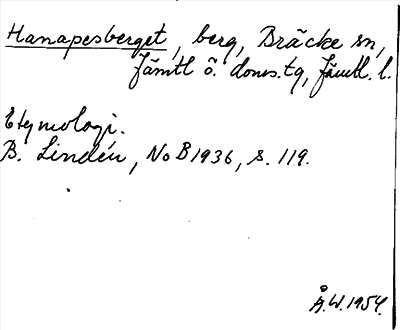 Hanapesberget, berg, Bräcke sn,
Jämtl ö. doms.tg, Jämtl. l.
Etymologi.
B. Lindén, NoB 1936, s. 119.
Å.W. 1954.